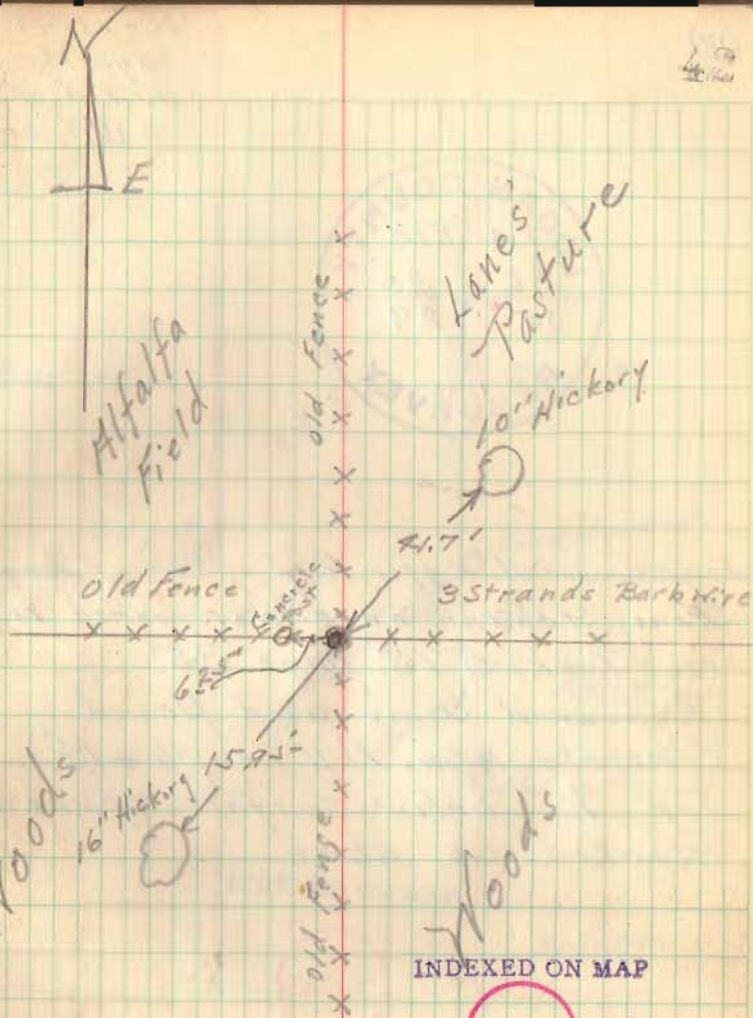 N
E
Lane's
Pasture
Alfalfa
Field
old Fence
10" Hickory
41.7'
old Fence
Concrete
Post
3 Strands Barb wire
15.95'
16" Hickory
Woods
old Fence
Woods
INDEXED ON MAP